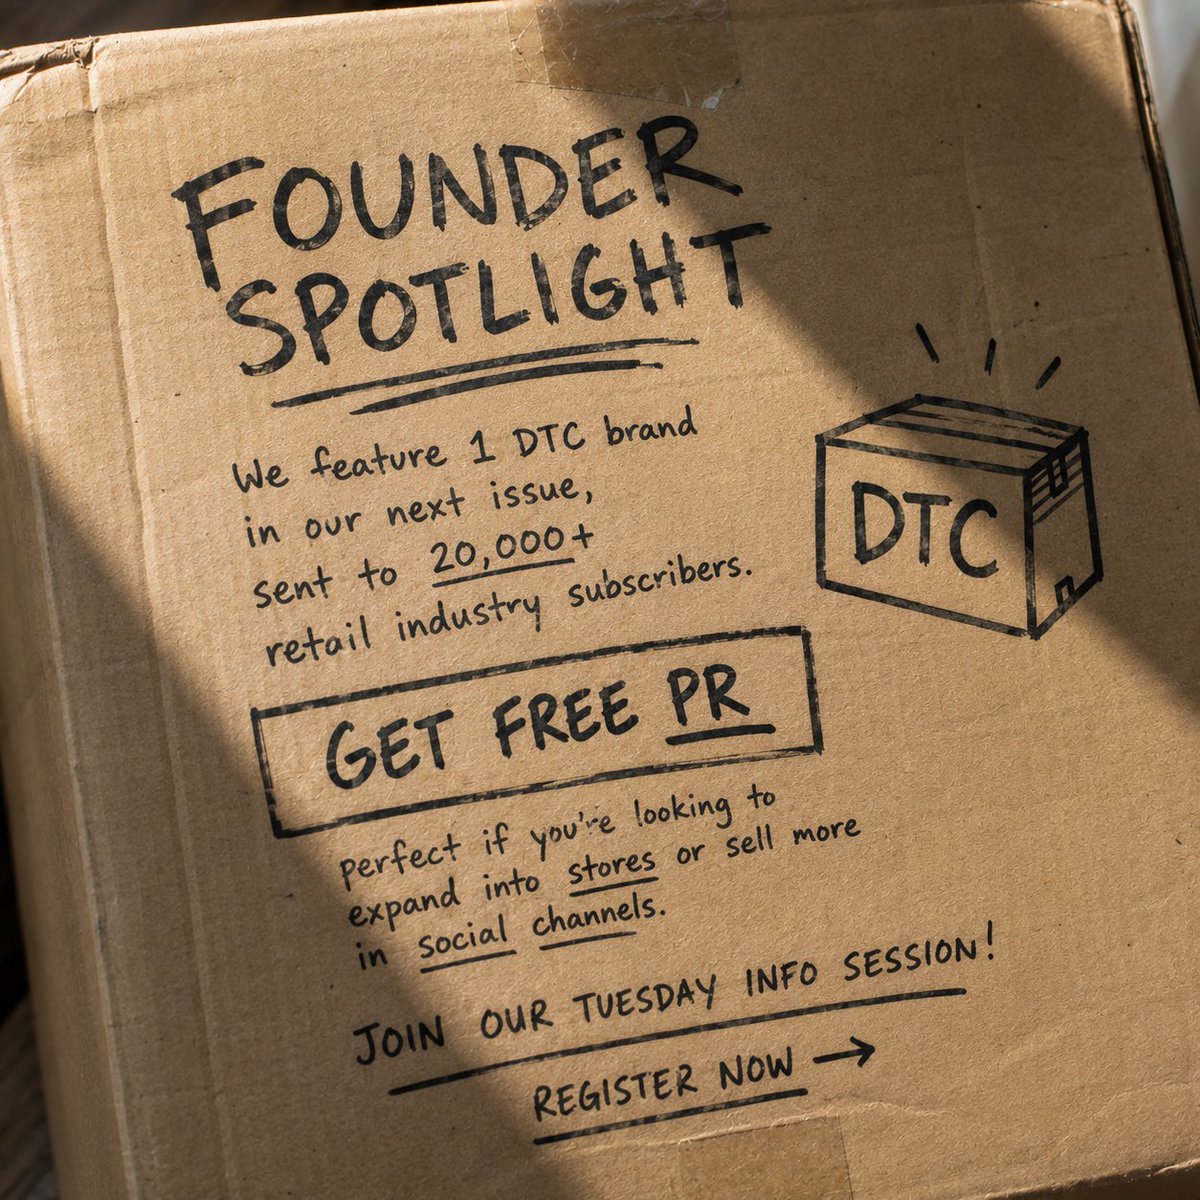 FOUNDER
SPOTLIGHT
We feature 1 DTC brand
in our next issue,
sent to 20,000+
retail industry subscribers.
DTC
GET FREE PR
perfect if you're looking to
expand into stores or sell more
in social channels.
JOIN OUR TUESDAY INFO SESSION!
REGISTER NOW →